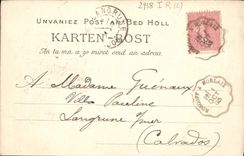 2918 I R (c)
UNVANIEZ POST AN BED HOLL
KARTEN-POST
An tu ma a go miret evid an adress.
A Madame Guénaux
Villa Pauline
Langrune s/mer
(Calvados)